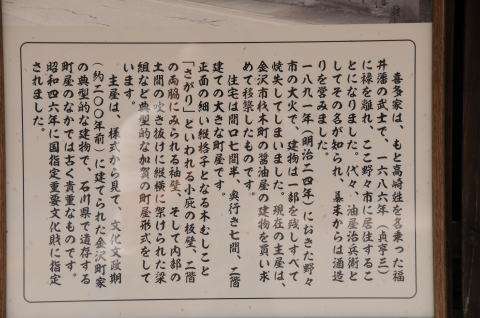 喜多家は、もと高崎姓を名乗った福
井藩の武士で、一六八六年(貞享三)
に禄を離れ、ここ野々市に居住するこ
とになりました。代々、油屋治兵衛と
してその名が知られ、幕末からは酒造
りを営みました。
一八九一年(明治二四年)におきた野々
市の大火で、建物は一部を残しすべて
焼失してしまいました。現在の主屋は、
金沢市材木町の醤油屋の建物を買い求
めて移築したものです。
住宅は間口七間半、奥行き七間、二階
建ての大きな町屋です。
正面の細い縦格子となる木むしこと
「さがり」といわれる小庇の板壁、二階
の両脇にみられる袖壁、そして内部の
土間の吹き抜けに縦横に架けられた梁
組など典型的な加賀の町屋形式をして
います。
主屋は、様式から見て、文化文政期
(約二〇〇年前)に建てられた金沢町家
の典型的な建物で、石川県で遺存する
町屋のなかでは古く貴重なものです。
昭和四六年に国指定重要文化財に指定
されました。